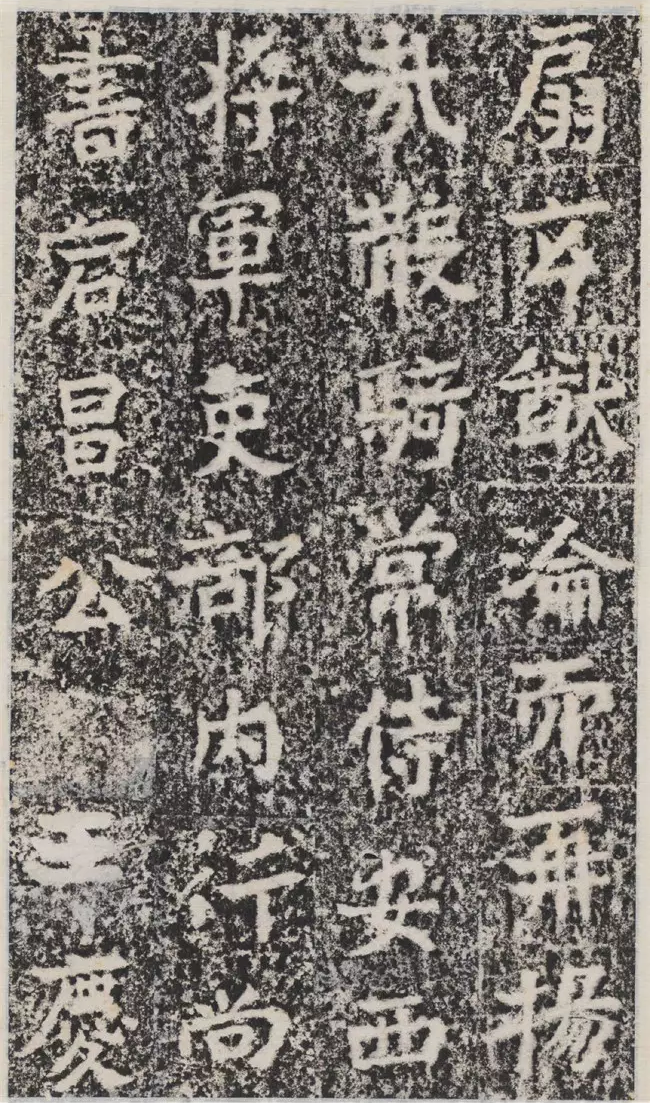 扇玄猷淪而再揚
哉散騎常侍安西
將軍吏部内行尚
書宕昌公王慶